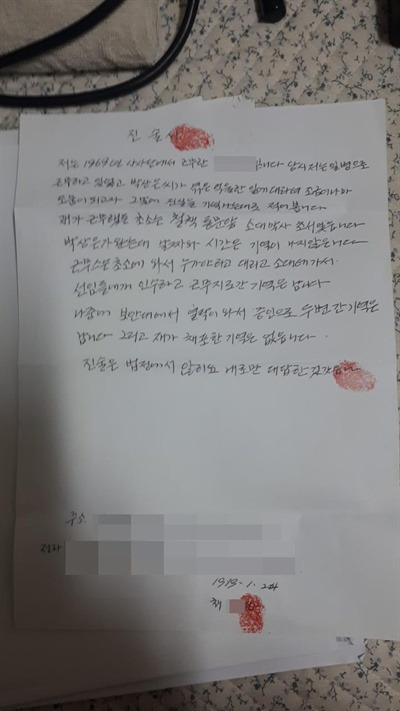 진술서
저는 1969년 사사단에서 근무한 니다 당시 저는 일병으로
근무하고 있었고 박상은씨가 겪은 억울한 일에 대하여 조금이나마
도움이 되고자 그 기억나는대로 적어봅니다
재가 근무했든 초소는 철책 통문앞 소대막사 초소였읍니다
박상은가 왔는데 날짜와 시간은 기억이 나지않읍니다
근무스든초소에 와서 누가 데리고 소대에가서
선임들에게 인수하고 근무지로간 기억은 납니다
나중에 보안대에서 연락이 와서 증인으로 두번간 기억은
납니다 그리고 재가 체포한 기억은 없읍니다.
진술은 법정에서 대로만 대답한것
주소
전화
2
채